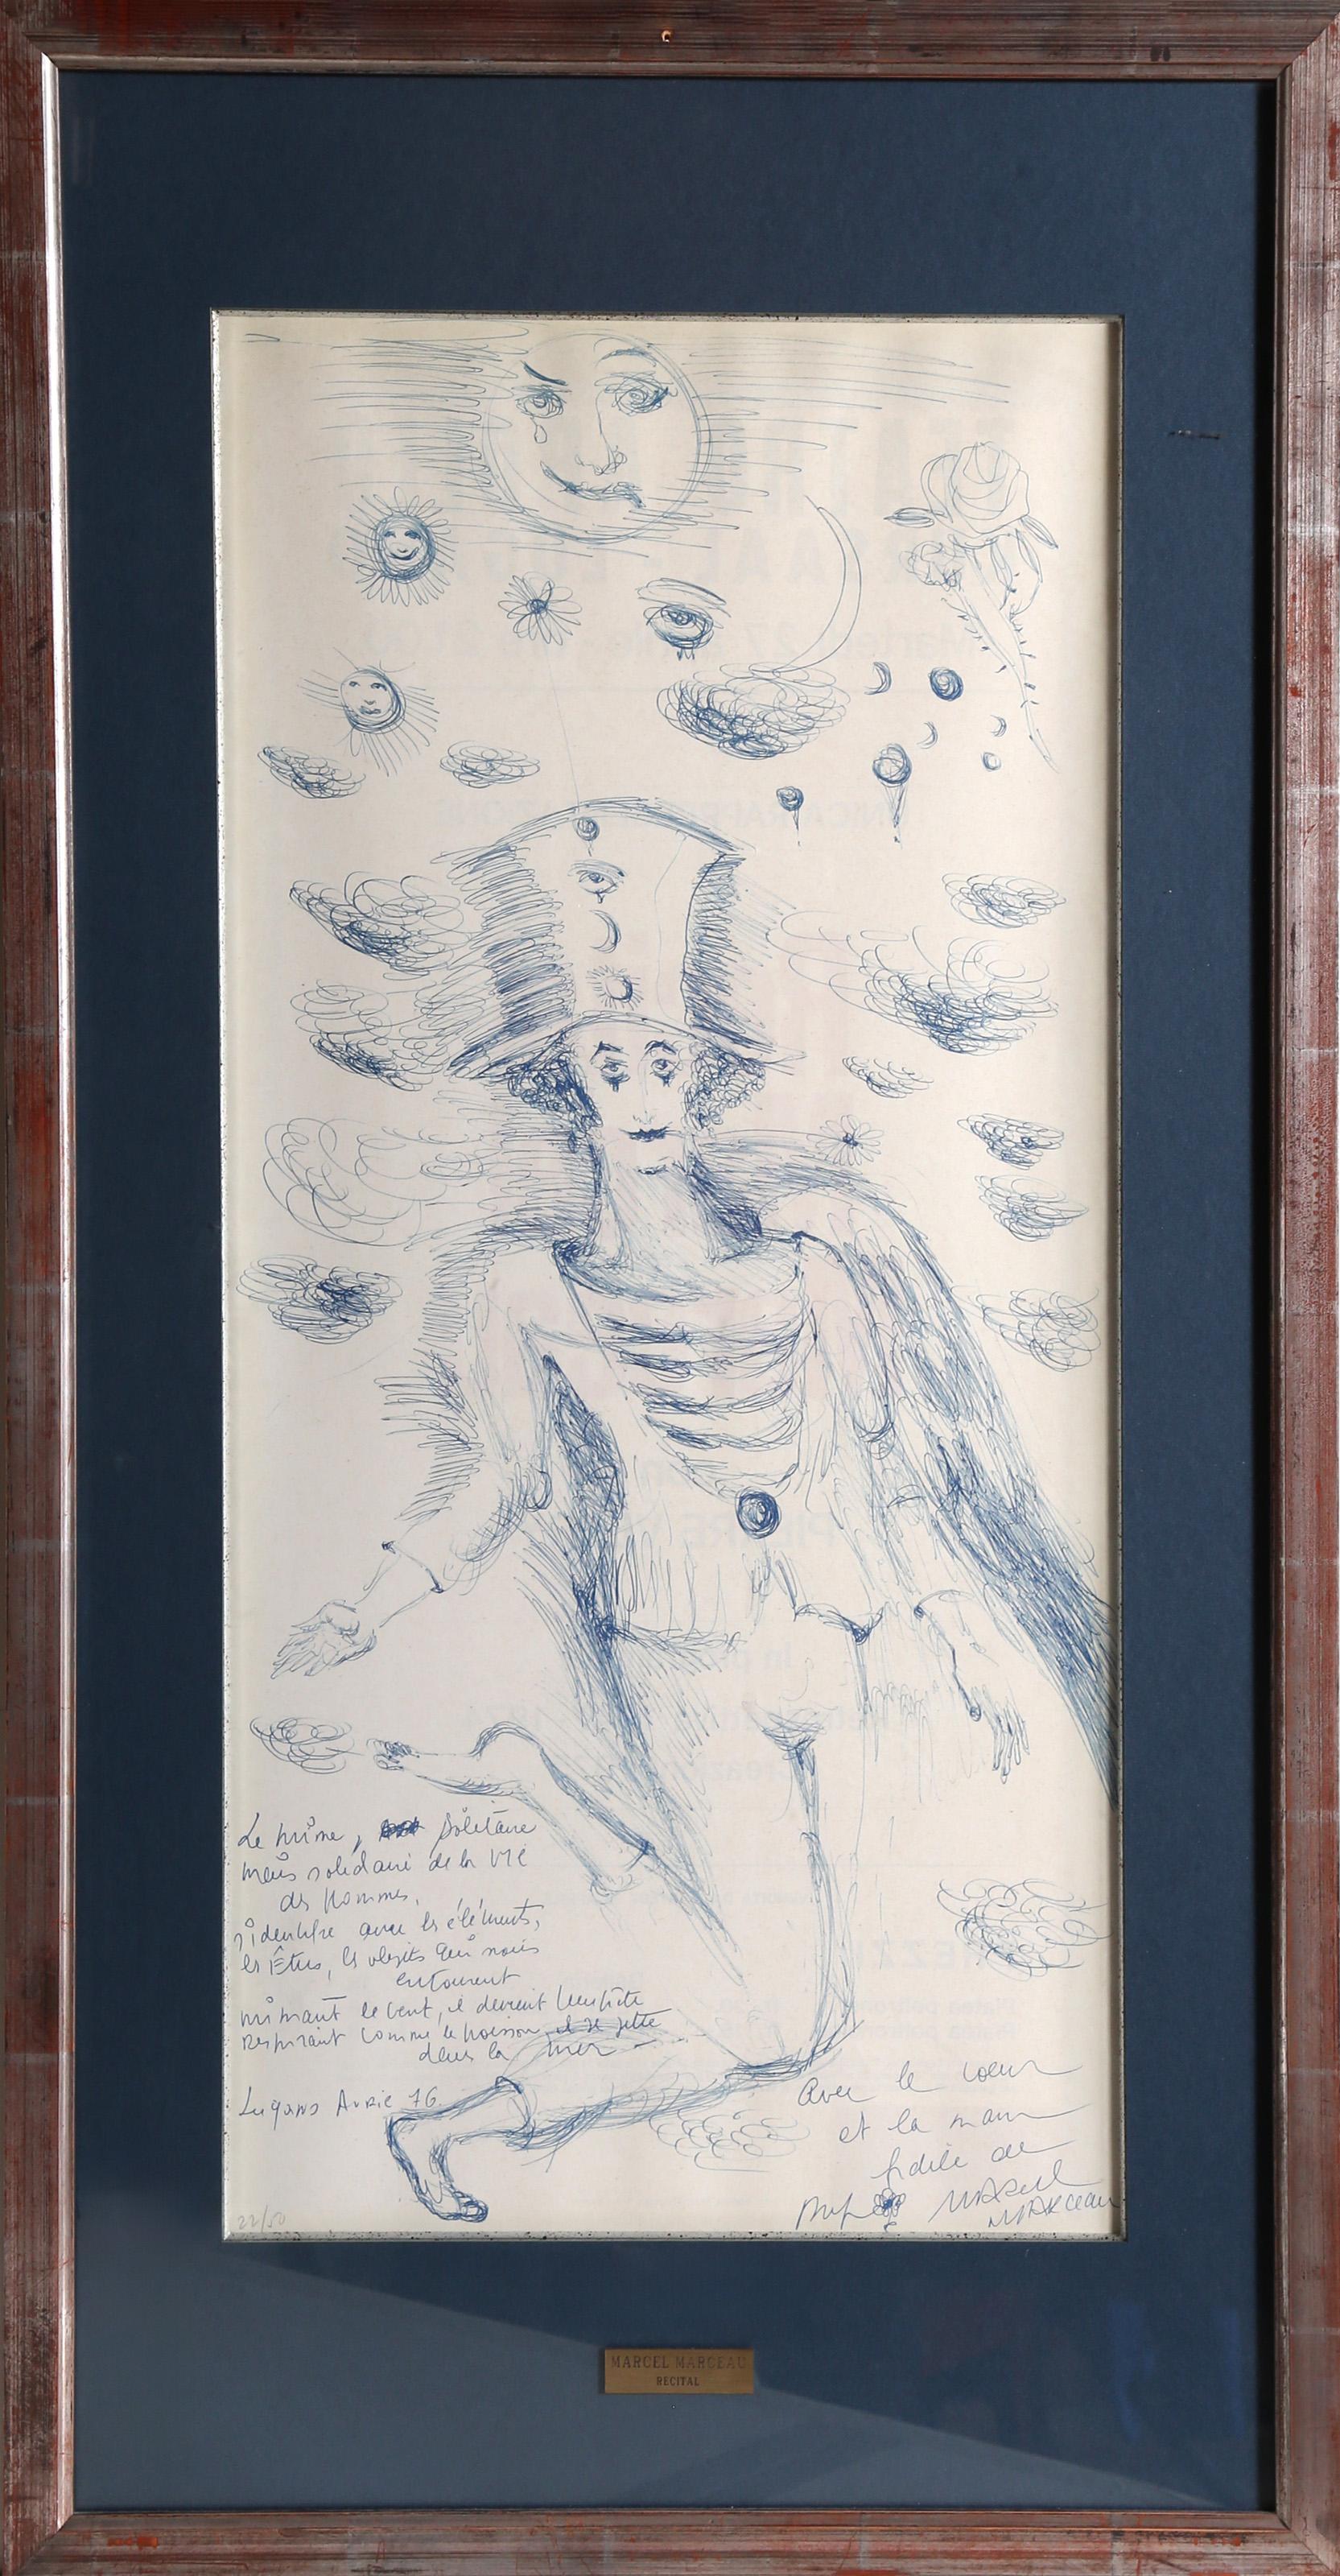 Le mime, solitaire
mais solidaire de la vie
des hommes,
s'identifie avec les éléments,
les Êtres, les objets qui nous
entourent
mimant le vent, il devient tempête
respirant comme le poisson il se jette
dans la mer -
Lugano Avril 76
Avec le coeur
et la main
fidèle de
Bip Marcel
Marceau
22/50
MARCEL MARCEAU
RECITAL